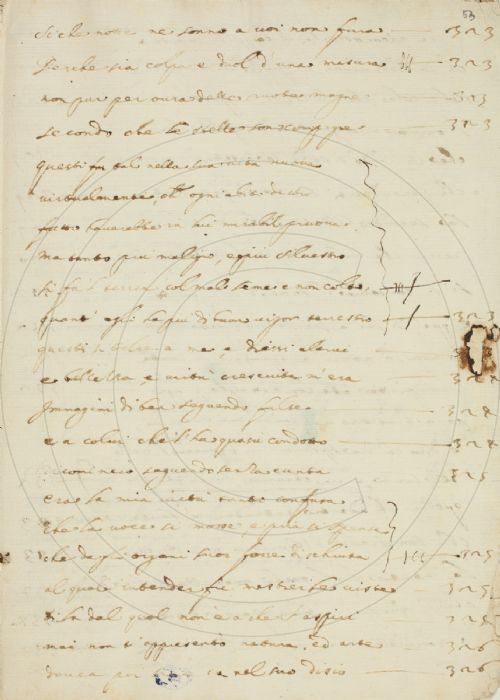 53
si che notte ne sonno a voi non fura 323
Perche sia colpa e duol d'una misura 323
non pur per ovra delle ruote magne 323
secondo che le stelle son compagne 323
questi fu tal nella sua vita nuova
virtualmente ch' ogni abito destro
fatto haverebbe in lui mirabil pruova
ma tanto piu maligno e piu silvestro
si fa 'l terren col mal seme e non colto
quant' egli ha piu di buon vigor terrestro 323
questi si tolse a me, e diessi altrui
e bellezza e virtù cresciuta m'era
Immagini di ben seguendo false 324
e a colui che l'ha quasu condotto 324
325
era la mia virtù tanto confusa
che la voce si mosse e pria si spense
che da gli organi suoi fosse dischiusa 325
al quale intender fu 325
di la dal qual non è a che s'aspiri 325
mai non t'appresentò natura, ed arte 326
dovea per te nel suo disio 326